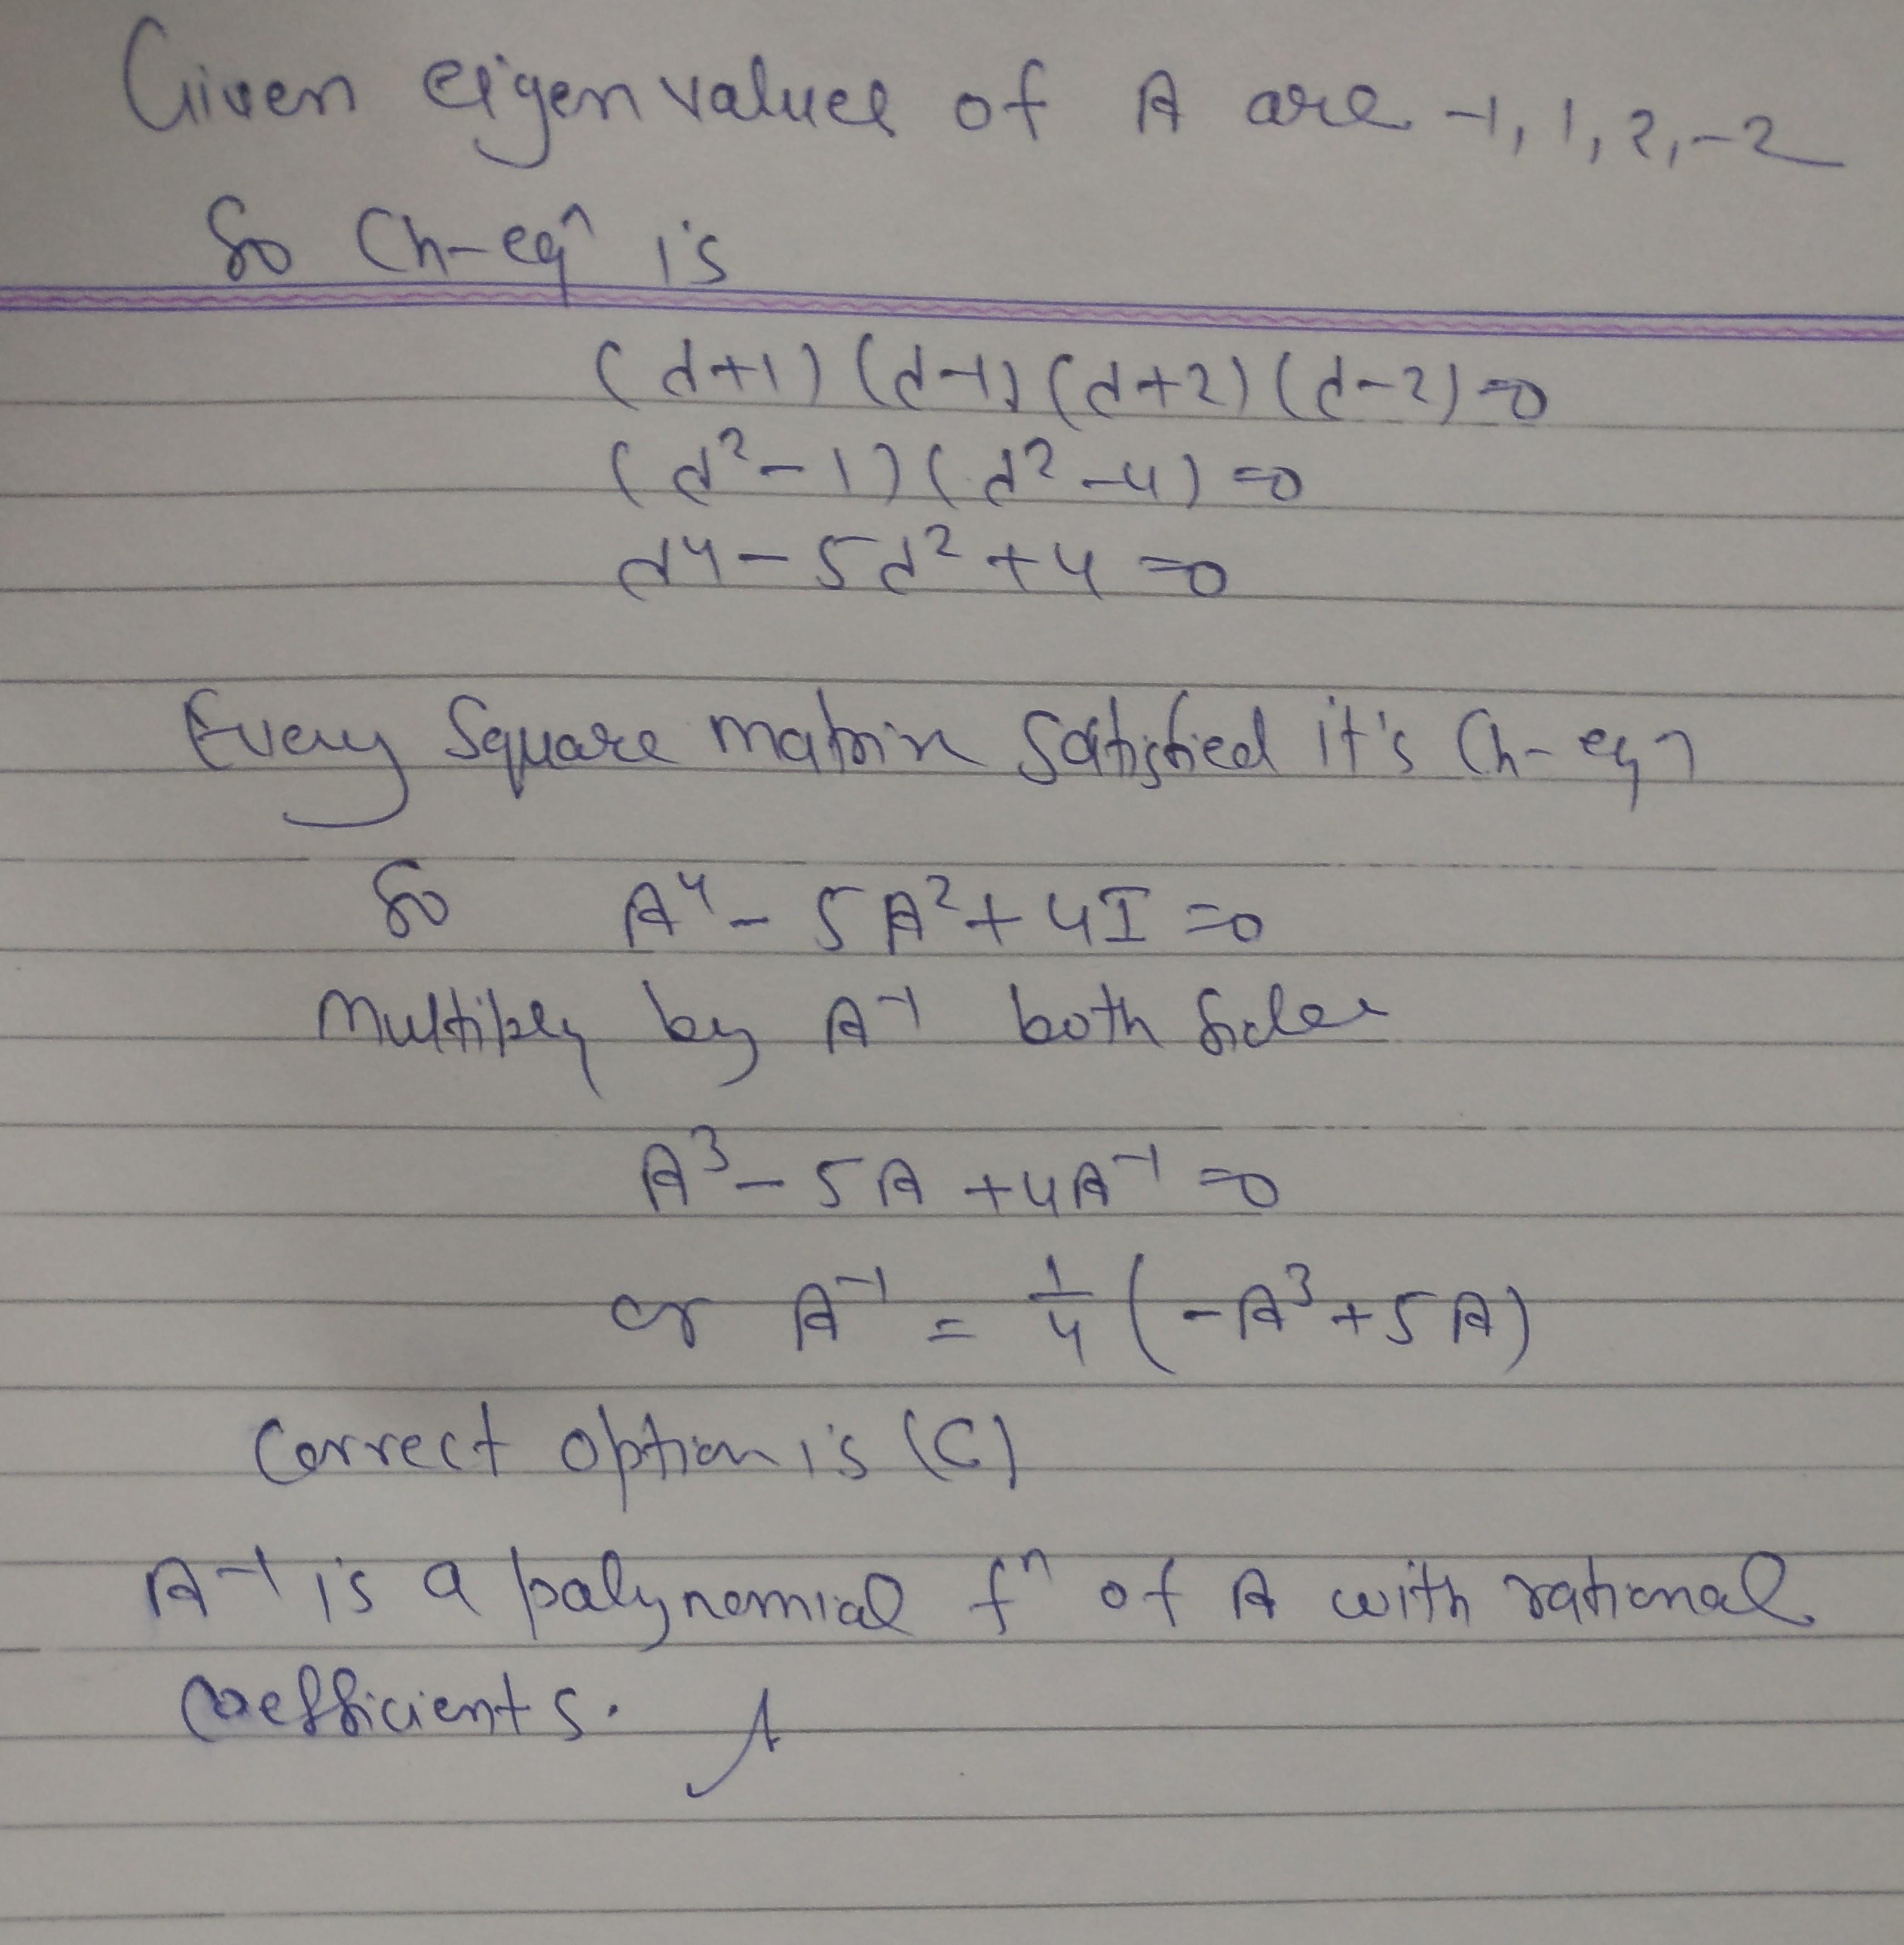 Given eigen values of A are -1, 1, 2, -2
So Ch-eqⁿ is
(d+1) (d-1) (d+2) (d-2) =0
(d²-1) (d²-4) =0
d⁴ - 5d² + 4 =0
Every Square matrix Satisfied it's Ch-eqn
So A⁴ - 5A² + 4I =0
Multiply by A⁻¹ both Sides
A³ - 5A + 4A⁻¹ =0
or A⁻¹ = 1/4 (-A³ + 5A)
Correct option is (C)
A⁻¹ is a polynomial fⁿ of A with rational
Coefficients.